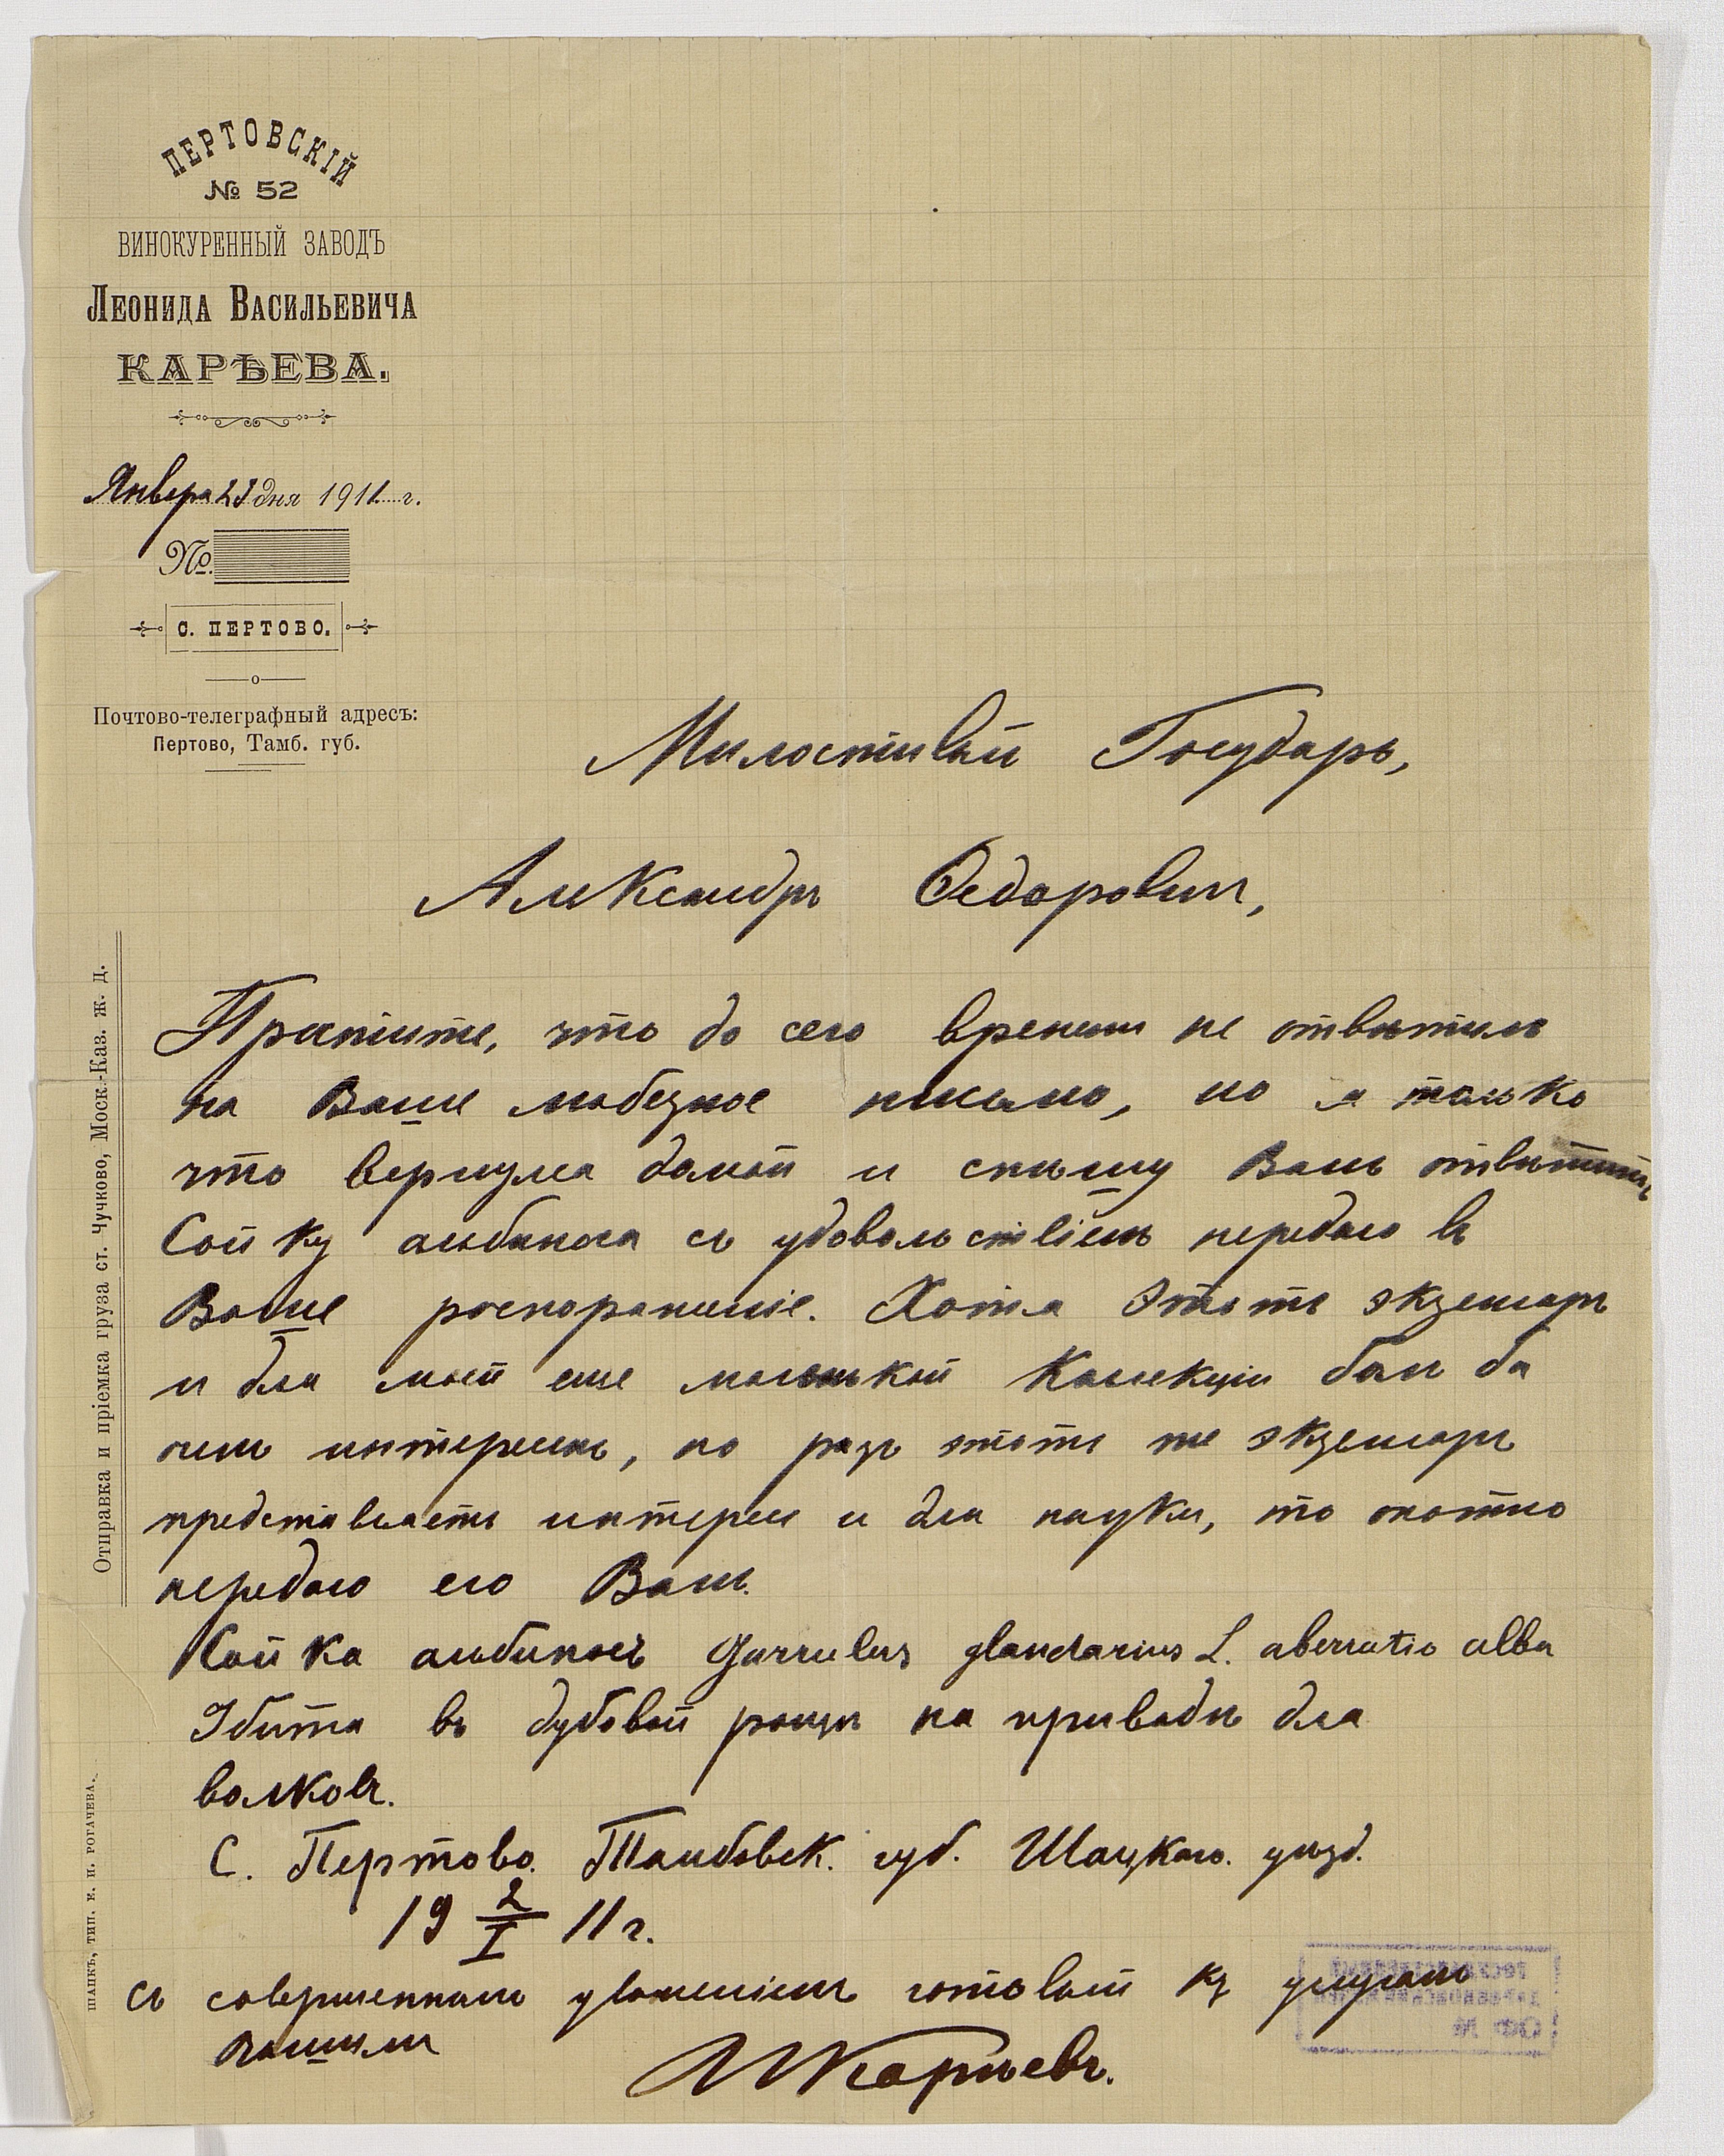 ПЕРТОВСКІЙ
№ 52
ВИНОКУРЕННЫЙ ЗАВОДЪ
ЛЕОНИДА ВАСИЛЬЕВИЧА
КАРѢЕВА.
Января 23 дня 1911 г.
№
С. ПЕРТОВО.
Почтово-телеграфный адресъ:
Пертово, Тамб. губ.
Отправка и пріемка груза ст. Чучково, Моск.-Каз. ж. д.
ШАЦКЪ, ТИП. Е. П. РОГАЧЕВА.
Милостивый Государь,
Александръ Ѳедоровичъ,
Простите, что до сего времени не отвѣтилъ
на Ваше любезное письмо, но я только
что вернулся домой и спѣшу Вамъ отвѣтить
Сойку альбиноса съ удовольствіемъ передаю въ
Ваше распоряженіе. Хотя этотъ экземпляръ
и для моей еще маленькой колекціи былъ бы
интересенъ, но разъ этотъ же экземпляръ
представляетъ интересъ и для науки, то охотно
передаю его Вамъ.
Сойка альбиносъ Garrulus glandarius L. aberratio alba
Убита въ дубовой рощѣ на привадѣ для
волковъ.
С. Пертово. Тамбовск. губ. Шацкаго. уѣзд.
19 2/I 11 г.
Съ совершеннымъ уваженіемъ готовый къ услугамъ
Вашимъ
Карѣевъ.
ОФ №